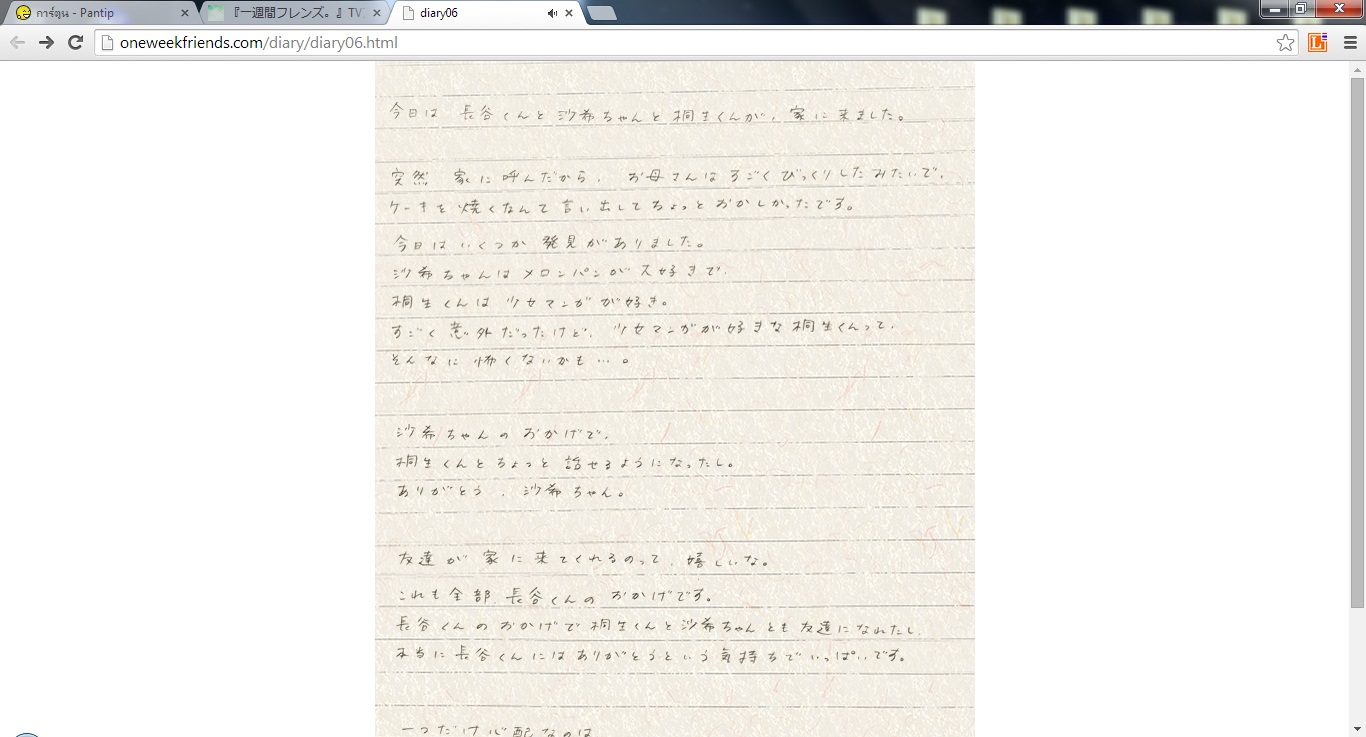 การ์ตูน - Pantip
『一週間フレンズ。』TV
diary06
oneweekfriends.com/diary/diary06.html
今日は 長谷くんと沙希ちゃんと桐生くんが、家に来ました。
突然 家に呼んだから、お母さんはすごくびっくりしたみたいで、
ケーキを焼くなんて言い出してちょっとおかしかったです。
今日はいくつか発見がありました。
沙希ちゃんはメロンパンが大好きで、
桐生くんは少女マンガが好き。
すごく意外だったけど、少女マンガが好きな桐生くんって、
そんなに怖くないかも…。
沙希ちゃんのおかげで、
桐生くんとちょっと話せるようになったし。
ありがとう、沙希ちゃん。
友達が家に来てくれるのって、嬉しいな。
これも全部、長谷くんのおかげです。
長谷くんのおかげで桐生くんと沙希ちゃんとも友達になれたし、
本当に長谷くんにはありがとうという気持ちでいっぱいです。
一つだけ心配なのは